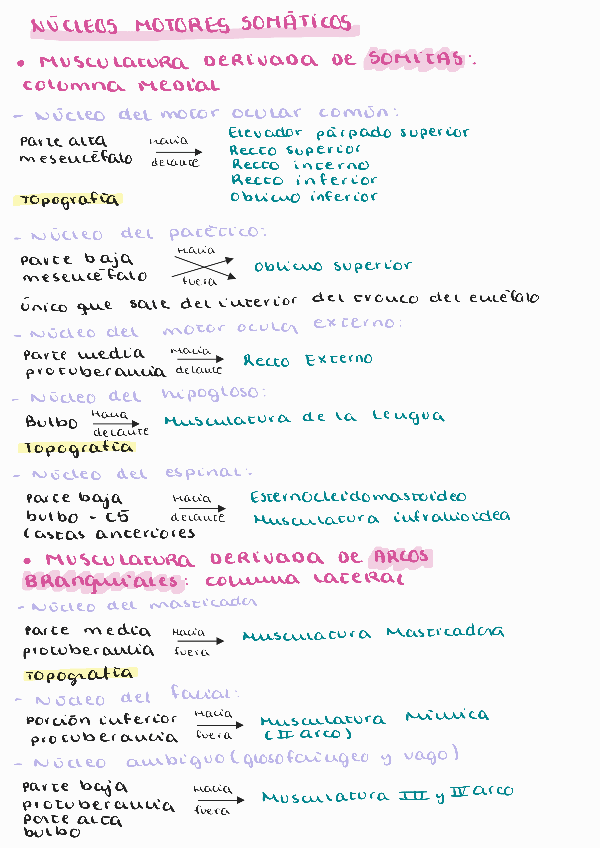 NÚCLEOS MOTORES SOMÁTICOS
• MUSCULATURA DERIVADA DE SOMITAS:
COLUMNA MEDIAL
- Núcleo del motor ocular común:
Parte alta mesencéfalo
Hacia delante
Elevador párpado superior
Recto superior
Recto interno
Recto inferior
Oblicuo inferior
Topografía
- Núcleo del patético:
Parte baja mesencéfalo
Hacia fuera
Oblicuo superior
único que sale del interior del tronco del encéfalo
- Núcleo del motor ocular externo:
Parte media protuberancia
Hacia delante
Recto Externo
- Núcleo del hipogloso:
Bulbo
Hacia delante
Musculatura de la lengua
Topografía
- Núcleo del espinal:
Parte baja
bulbo - C5
(astas anteriores
Hacia delante
Esternocleidomastoideo
Musculatura infrahioidea
• MUSCULATURA DERIVADA DE ARCOS
BRANQUIALES: COLUMNA LATERAL
- Núcleo del masticador
Parte media protuberancia
Hacia fuera
Musculatura Masticadora
Topografía
- Núcleo del facial:
Porción inferior protuberancia
Hacia fuera
Musculatura Mímica
(II arco)
- Núcleo ambiguo (glosofaríngeo y vago)
Parte baja
protuberancia
Parte alta
bulbo
Hacia fuera
Musculatura III y IV arco